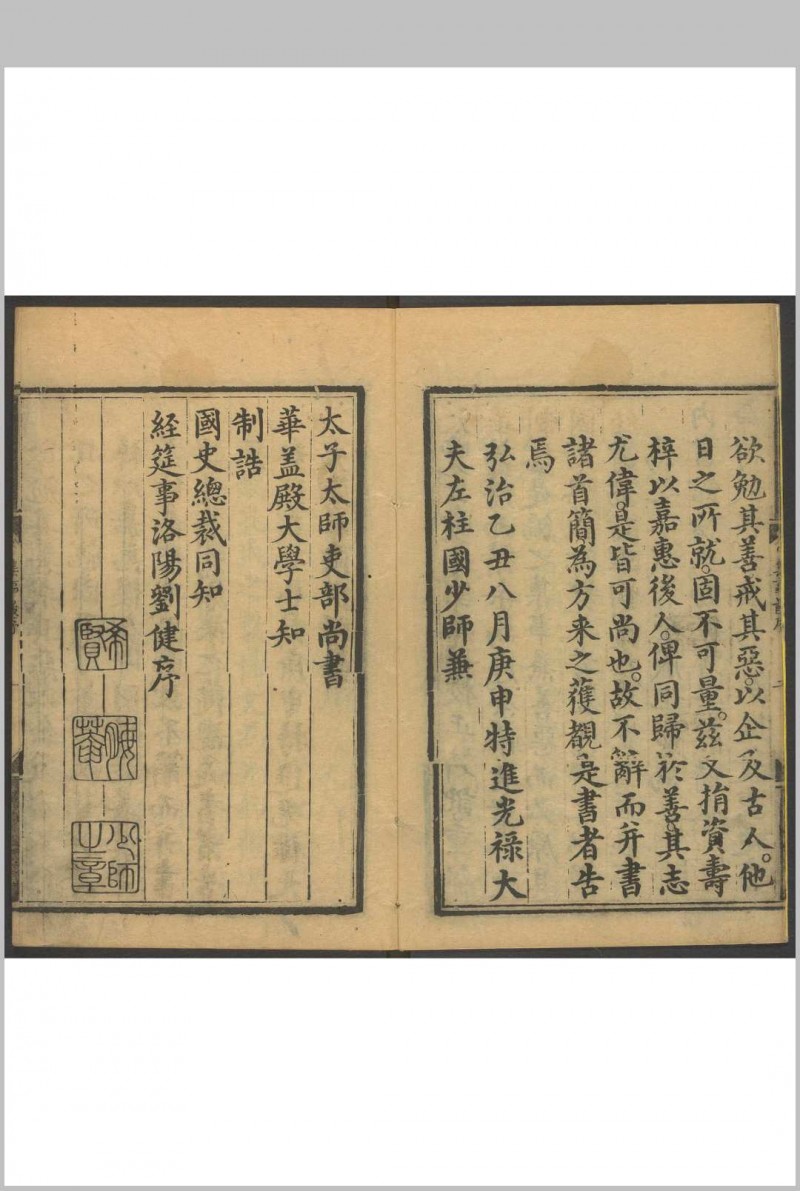 欲勉其善戒其惡。以企及古人。他
日之所就。固不可量。茲又捐資壽
梓以嘉惠後人。俾同歸於善。其志
尤偉。是皆可尚也。故不辭而并書
諸首簡為方来之獲覩是書者告
焉
弘治乙丑八月庚申特進光祿大
夫左柱國少師兼
太子太師吏部尚書
華盖殿大學士知
制誥
國史總裁同知
経筵事洛陽劉健序
希賢
晦菴
少師之章